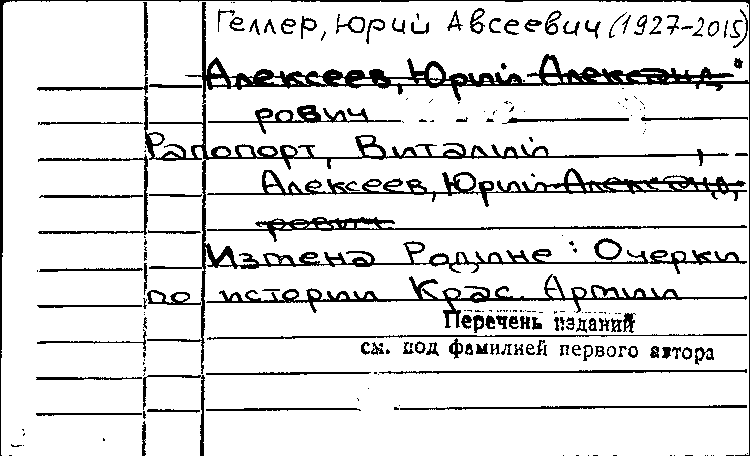 Геллер, Юрий Авсеевич (1927-2015)
Алексеев, Юрий Александ
рович
Рапопорт, Виталий ,
Алексеев, Юрий Александ
рович
Измена Родине : Очерки
по истории Крас. Армии
Перечень изданий
см. под фамилией первого автора